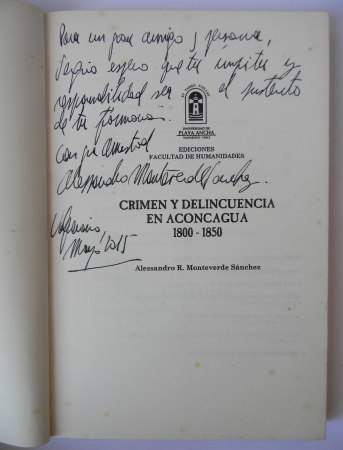 Para un gran amigo y persona,
Sergio espero que tu ímpetu y
responsabilidad sea el sustento
de tu formación.
Con gran amistad
Alessandro Monteverde Sánchez.
Valparaíso,
Mayo 2015
UNIVERSIDAD DE
PLAYA ANCHA
VALPARAISO - CHILE
EDICIONES
FACULTAD DE HUMANIDADES
CRIMEN Y DELINCUENCIA
EN ACONCAGUA
1800 - 1850
Alessandro R. Monteverde Sánchez